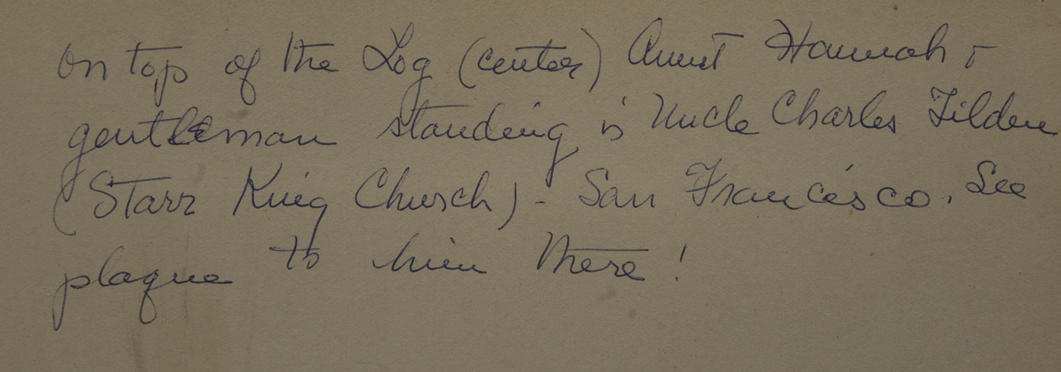 On top of the Log (center) Aunt Hannah &
gentleman standing is Uncle Charles Tilden
(Starr King Church) - San Francisco. See
plaque to him there!